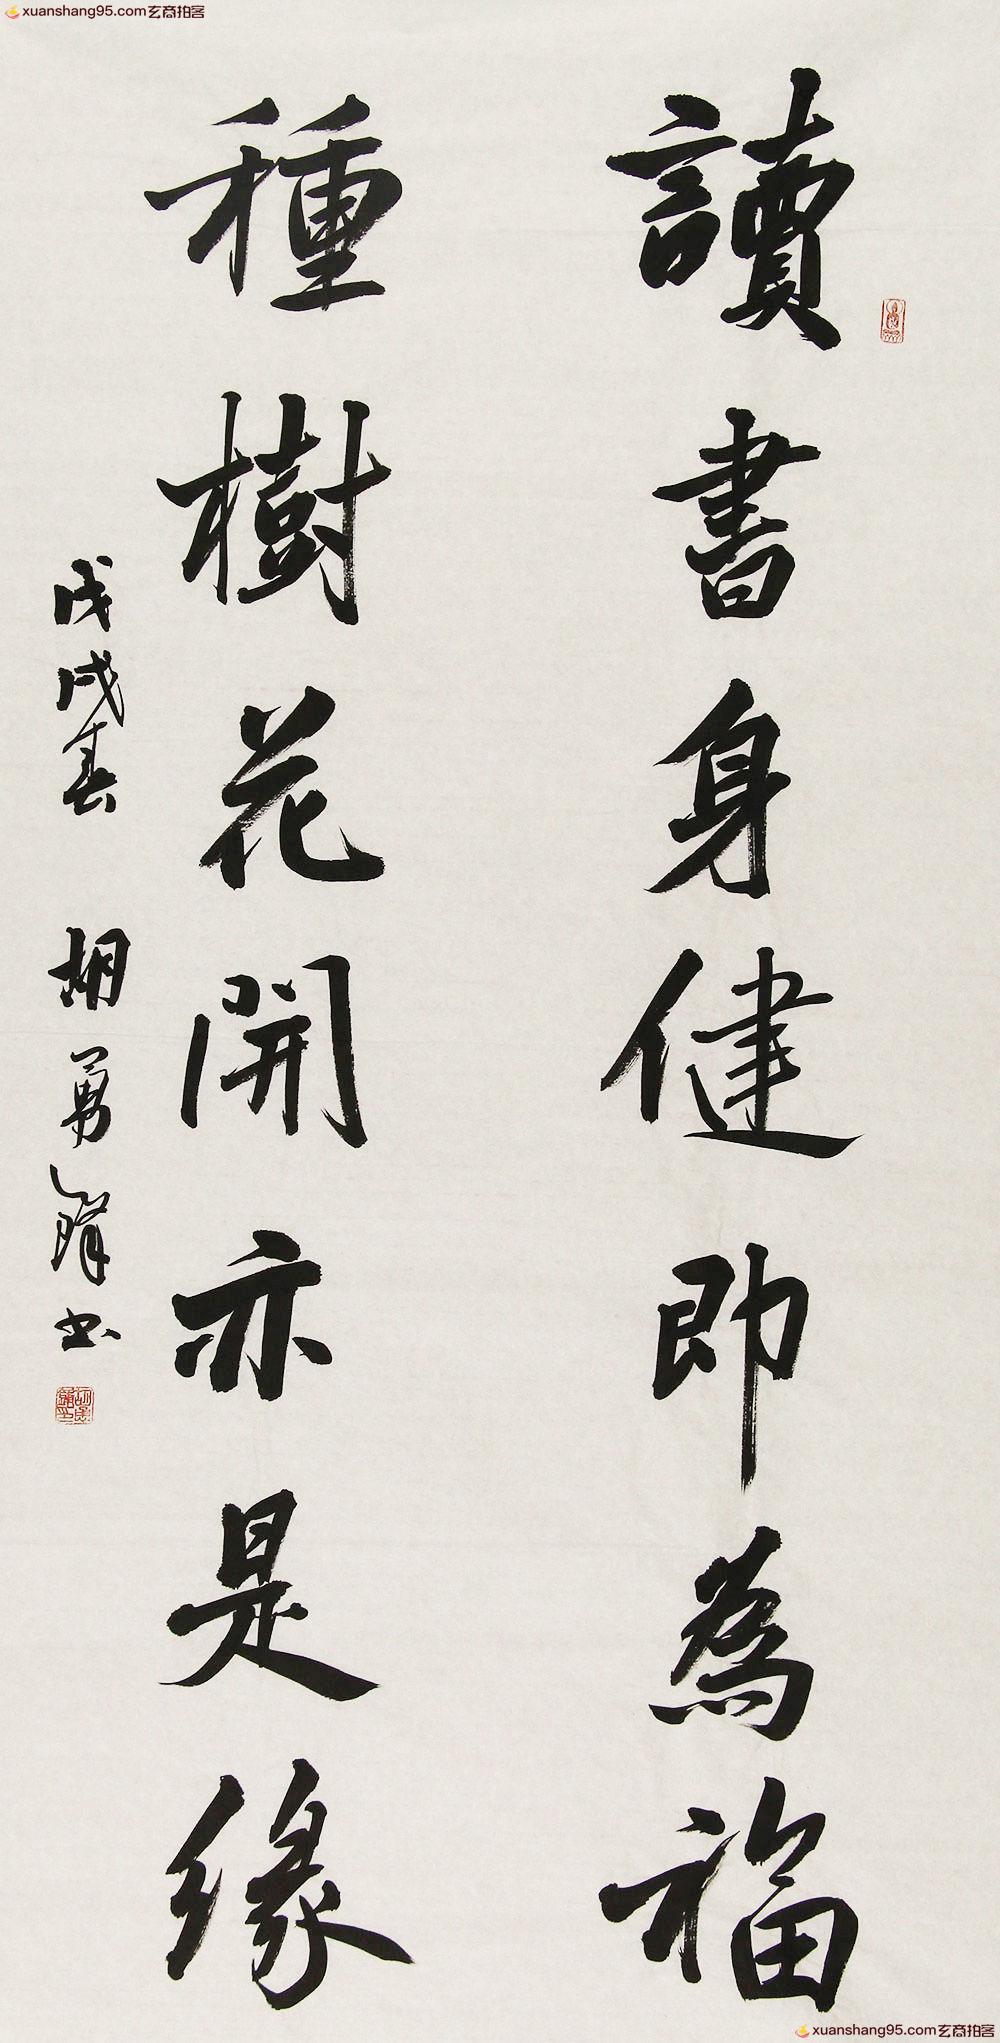 xuanshang95.com玄商拍客
讀書身健即為福
種樹花開亦是缘
戊戌春 胡勇鋒书
xuanshang95.com玄商拍客